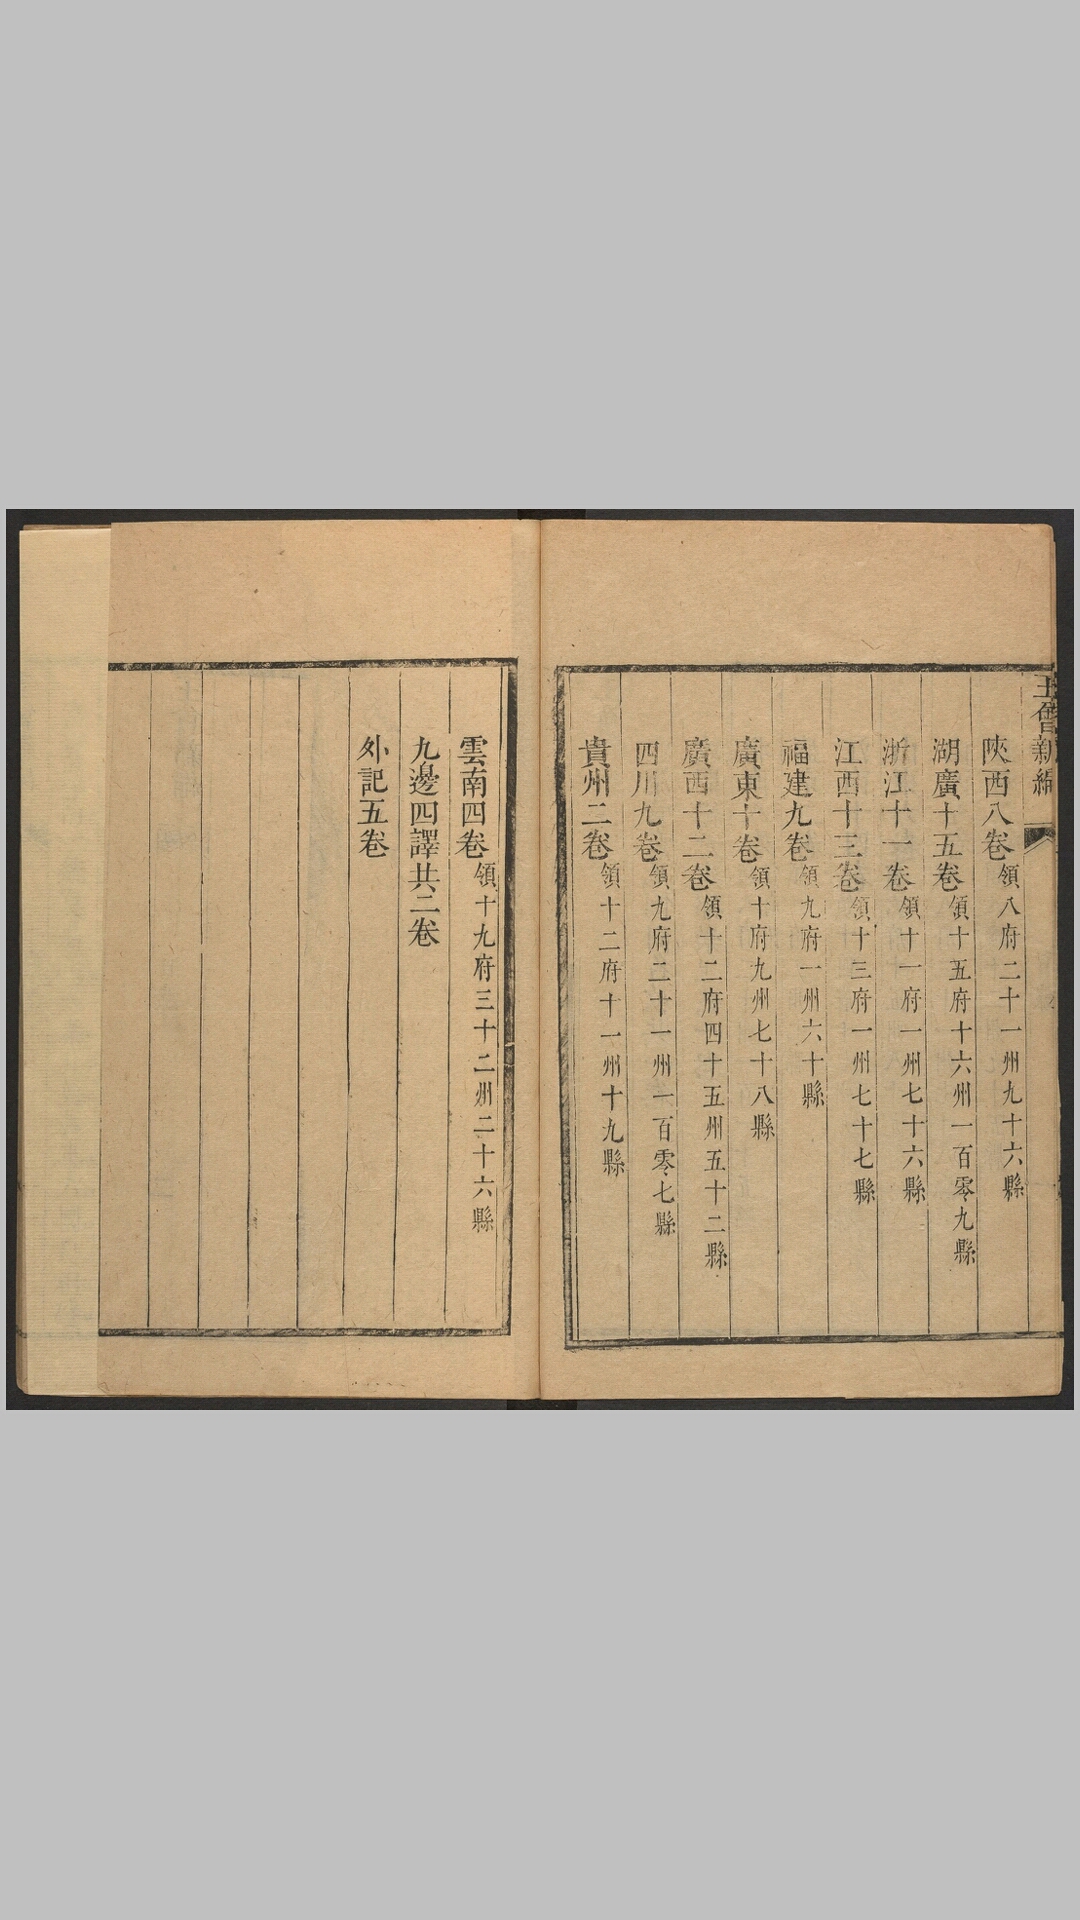 陝西八卷領八府二十一州九十六縣
湖廣十五卷領十五府十六州一百零九縣
浙江十一卷領十一府一州七十六縣
江西十三卷領十三府一州七十七縣
福建九卷領九府一州六十縣
廣東十卷領十府九州七十八縣
廣西十二卷領十二府四十五州五十二縣
四川九卷領九府二十一州一百零七縣
貴州二卷領十二府十一州十九縣
雲南四卷領十九府三十二州二十六縣
九邊四譯共二卷
外記五卷